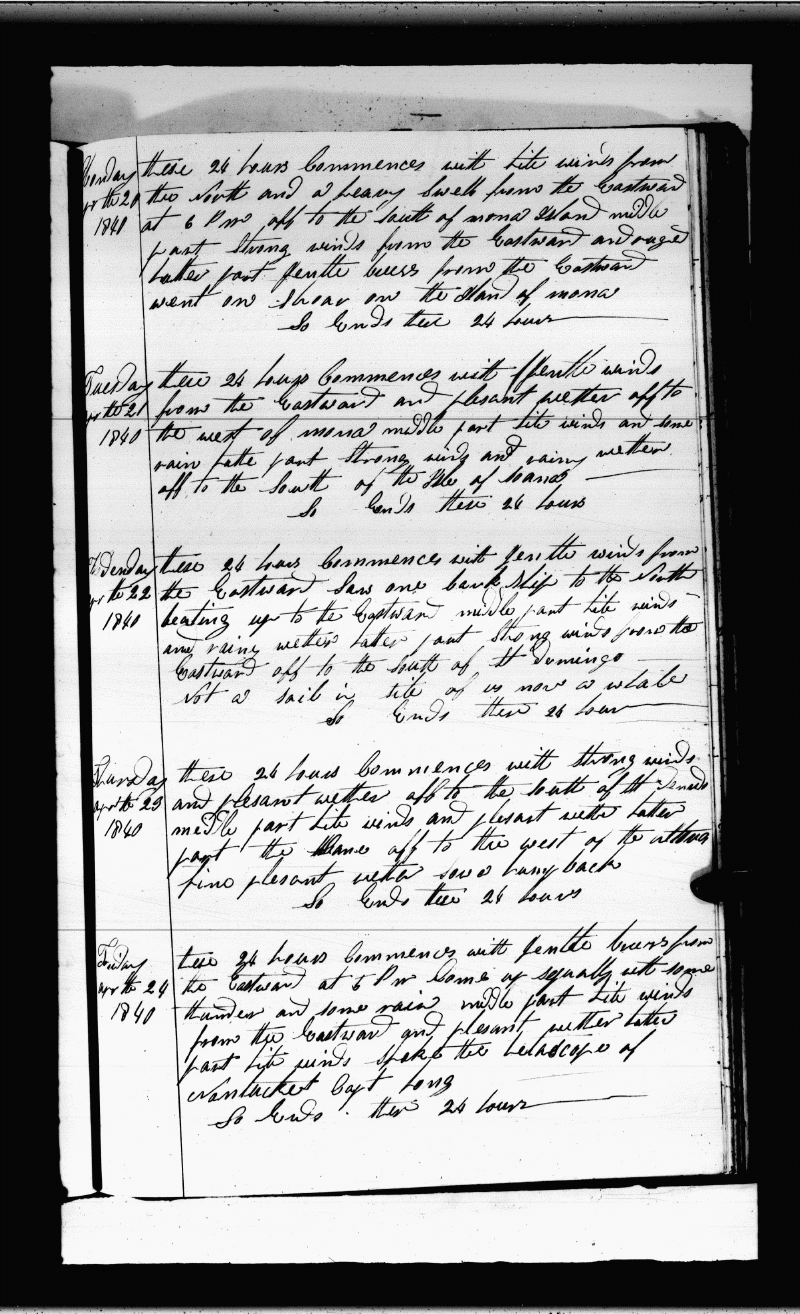 Monday these 24 hours Commences with lite winds from
apr the 20 the North and a heavy Swell from the Eastward
1840 at 6 Pm off to the south of mona Island middle
part Strong winds from the Eastward and ruged
latter part Jentle breess from the Eastward
went on shoar on the Iland of mona
So Ends these 24 hours
Tuesday these 24 hours Commences with Jentle winds
apr the 21 from the Eastward and plesant wetter off to
1840 the west of mona middle part lite winds an some
rain latte part Strong winds and rainy wetter
off to the South of the Ile of
So Ends these 24 hours
these 24 hours Commences with Jentle winds from
apr the 22 the Eastward Saw one bark Ship to the North
1840 beating up to the Eastward middle part lite winds
and rainy wetter latter part Strong winds from the
Eastward off to the south of St Domingo
Not a sail in site of us nor a whale
So Ends these 24 hours
Thursday these 24 hours Commences with strong winds
apr the 23 and plesant wether off to the south of St
1840 middle part lite winds and plesant wetter latter
part the Same off to the west of the
fine plesant wetter saw a
So Ends these 24 hours
Friday these 24 hours Commences with Jentle breess from
apr the 24 the Eastward at 6 Pm Some up squally with some
1840 thunder an some rain middle part lite winds
from the Eastward and plesant wetter latter
part lite winds spoke the telascope of
Nantucket Capt Long
So Ends these 24 hours